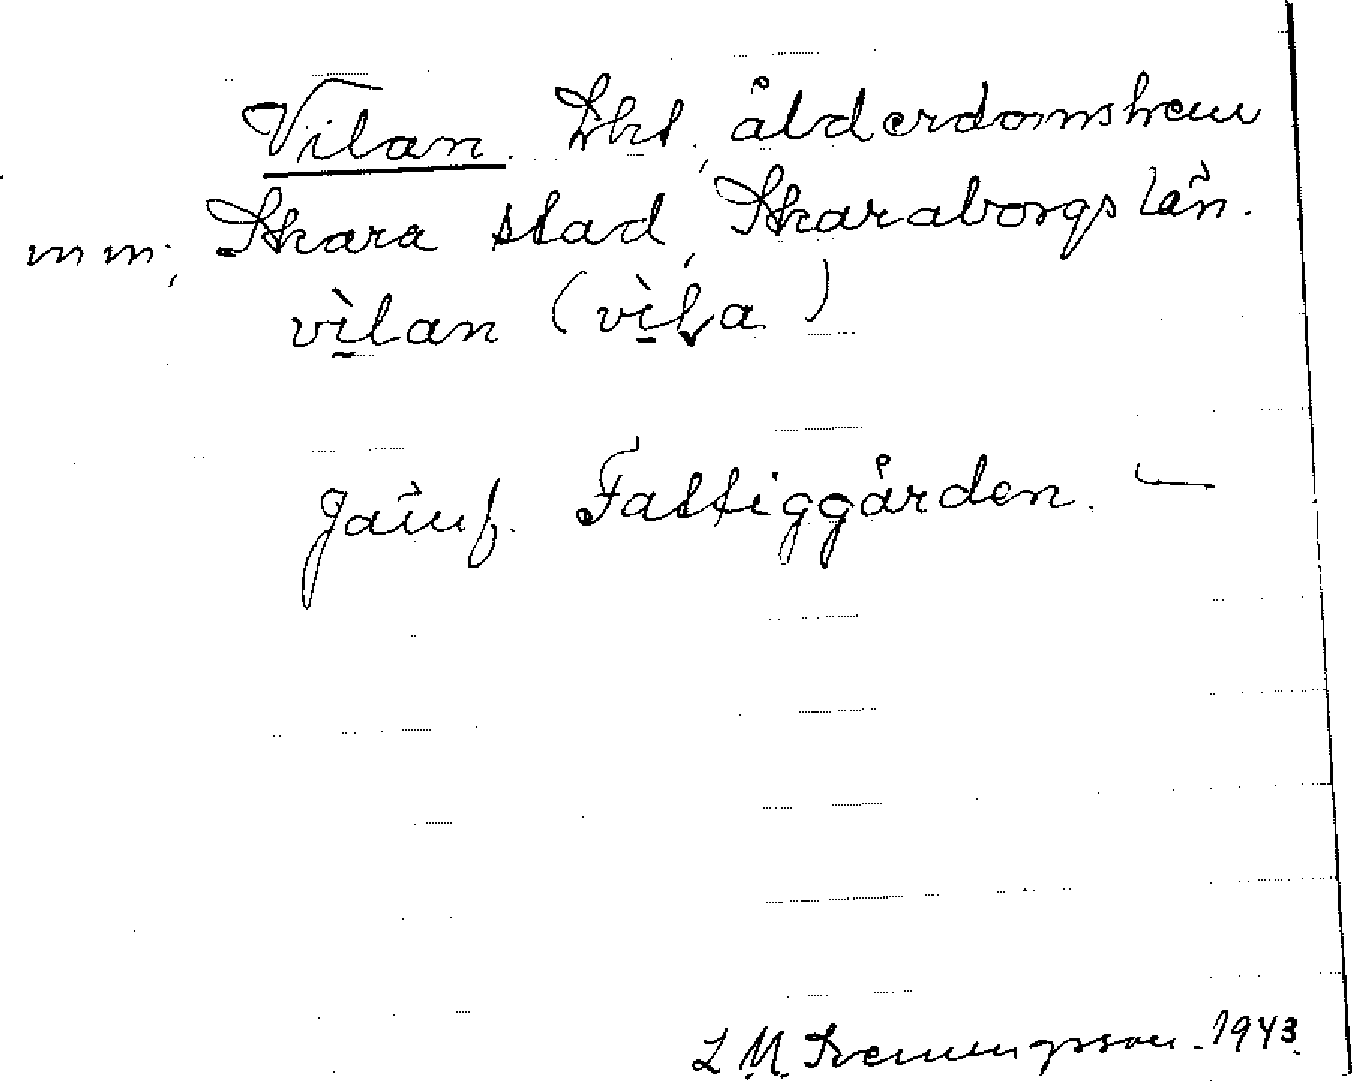 Vilan. Lht, ålderdomshem
mm; Skara stad, Skaraborgs län.
vìlan (vìla)
Jämf. Fattiggården. —
L M Svenungsson. 1943.